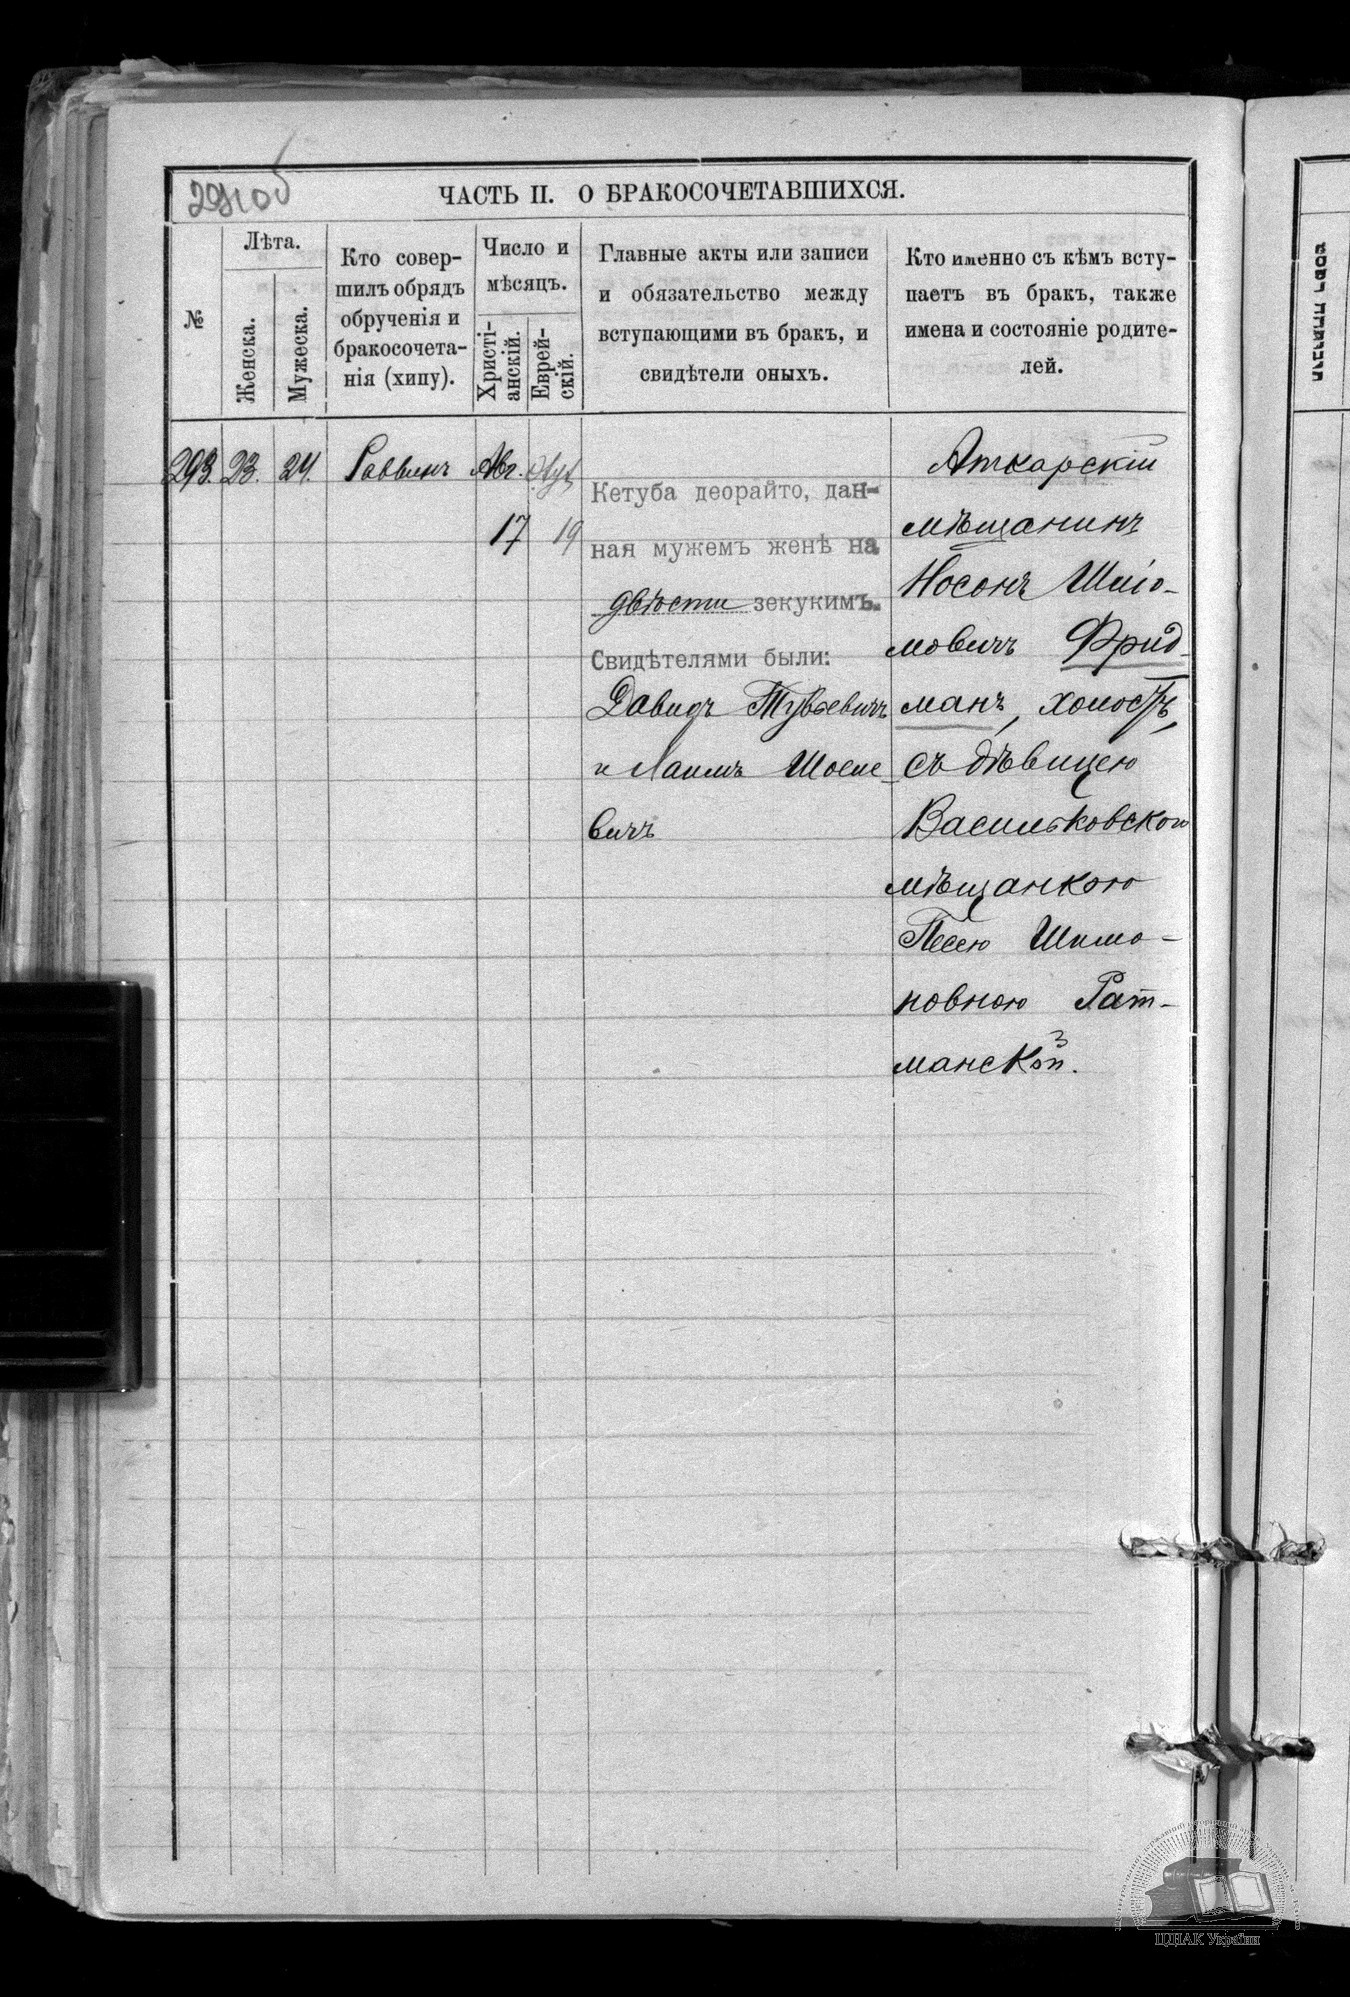 ЧАСТЬ II. О БРАКОСОЧЕТАВШИХСЯ.
№
Лѣта.
Женска.
Мужеска.
Кто совер-
шилъ обрядъ
обрученія и
бракосочета-
нія (хипу).
Число и
мѣсяцъ.
Христі-
анскій.
Еврей-
скій.
Главные акты или записи
и обязательство между
вступающими въ бракъ, и
свидѣтели оныхъ.
Кто именно съ кѣмъ всту-
паетъ въ бракъ, также
имена и состояніе родите-
лей.
293. 23. 24. Раввинъ Авг.
17 19
Кетуба деорайто, дан-
ная мужемъ женѣ на
двѣсти зекукимъ.
Свидѣтелями были:
Давидъ Тувьевичъ
и Хаимъ Шосие-
вичъ
Аткарскій
мѣщанинъ
Носонъ Шліо-
мовичъ Фрид-
манъ, холостъ,
съ дѣвицею
Васильковской
мѣщанкою
Песею Шимо-
новною Рат-
манской.
ЦДІАК України